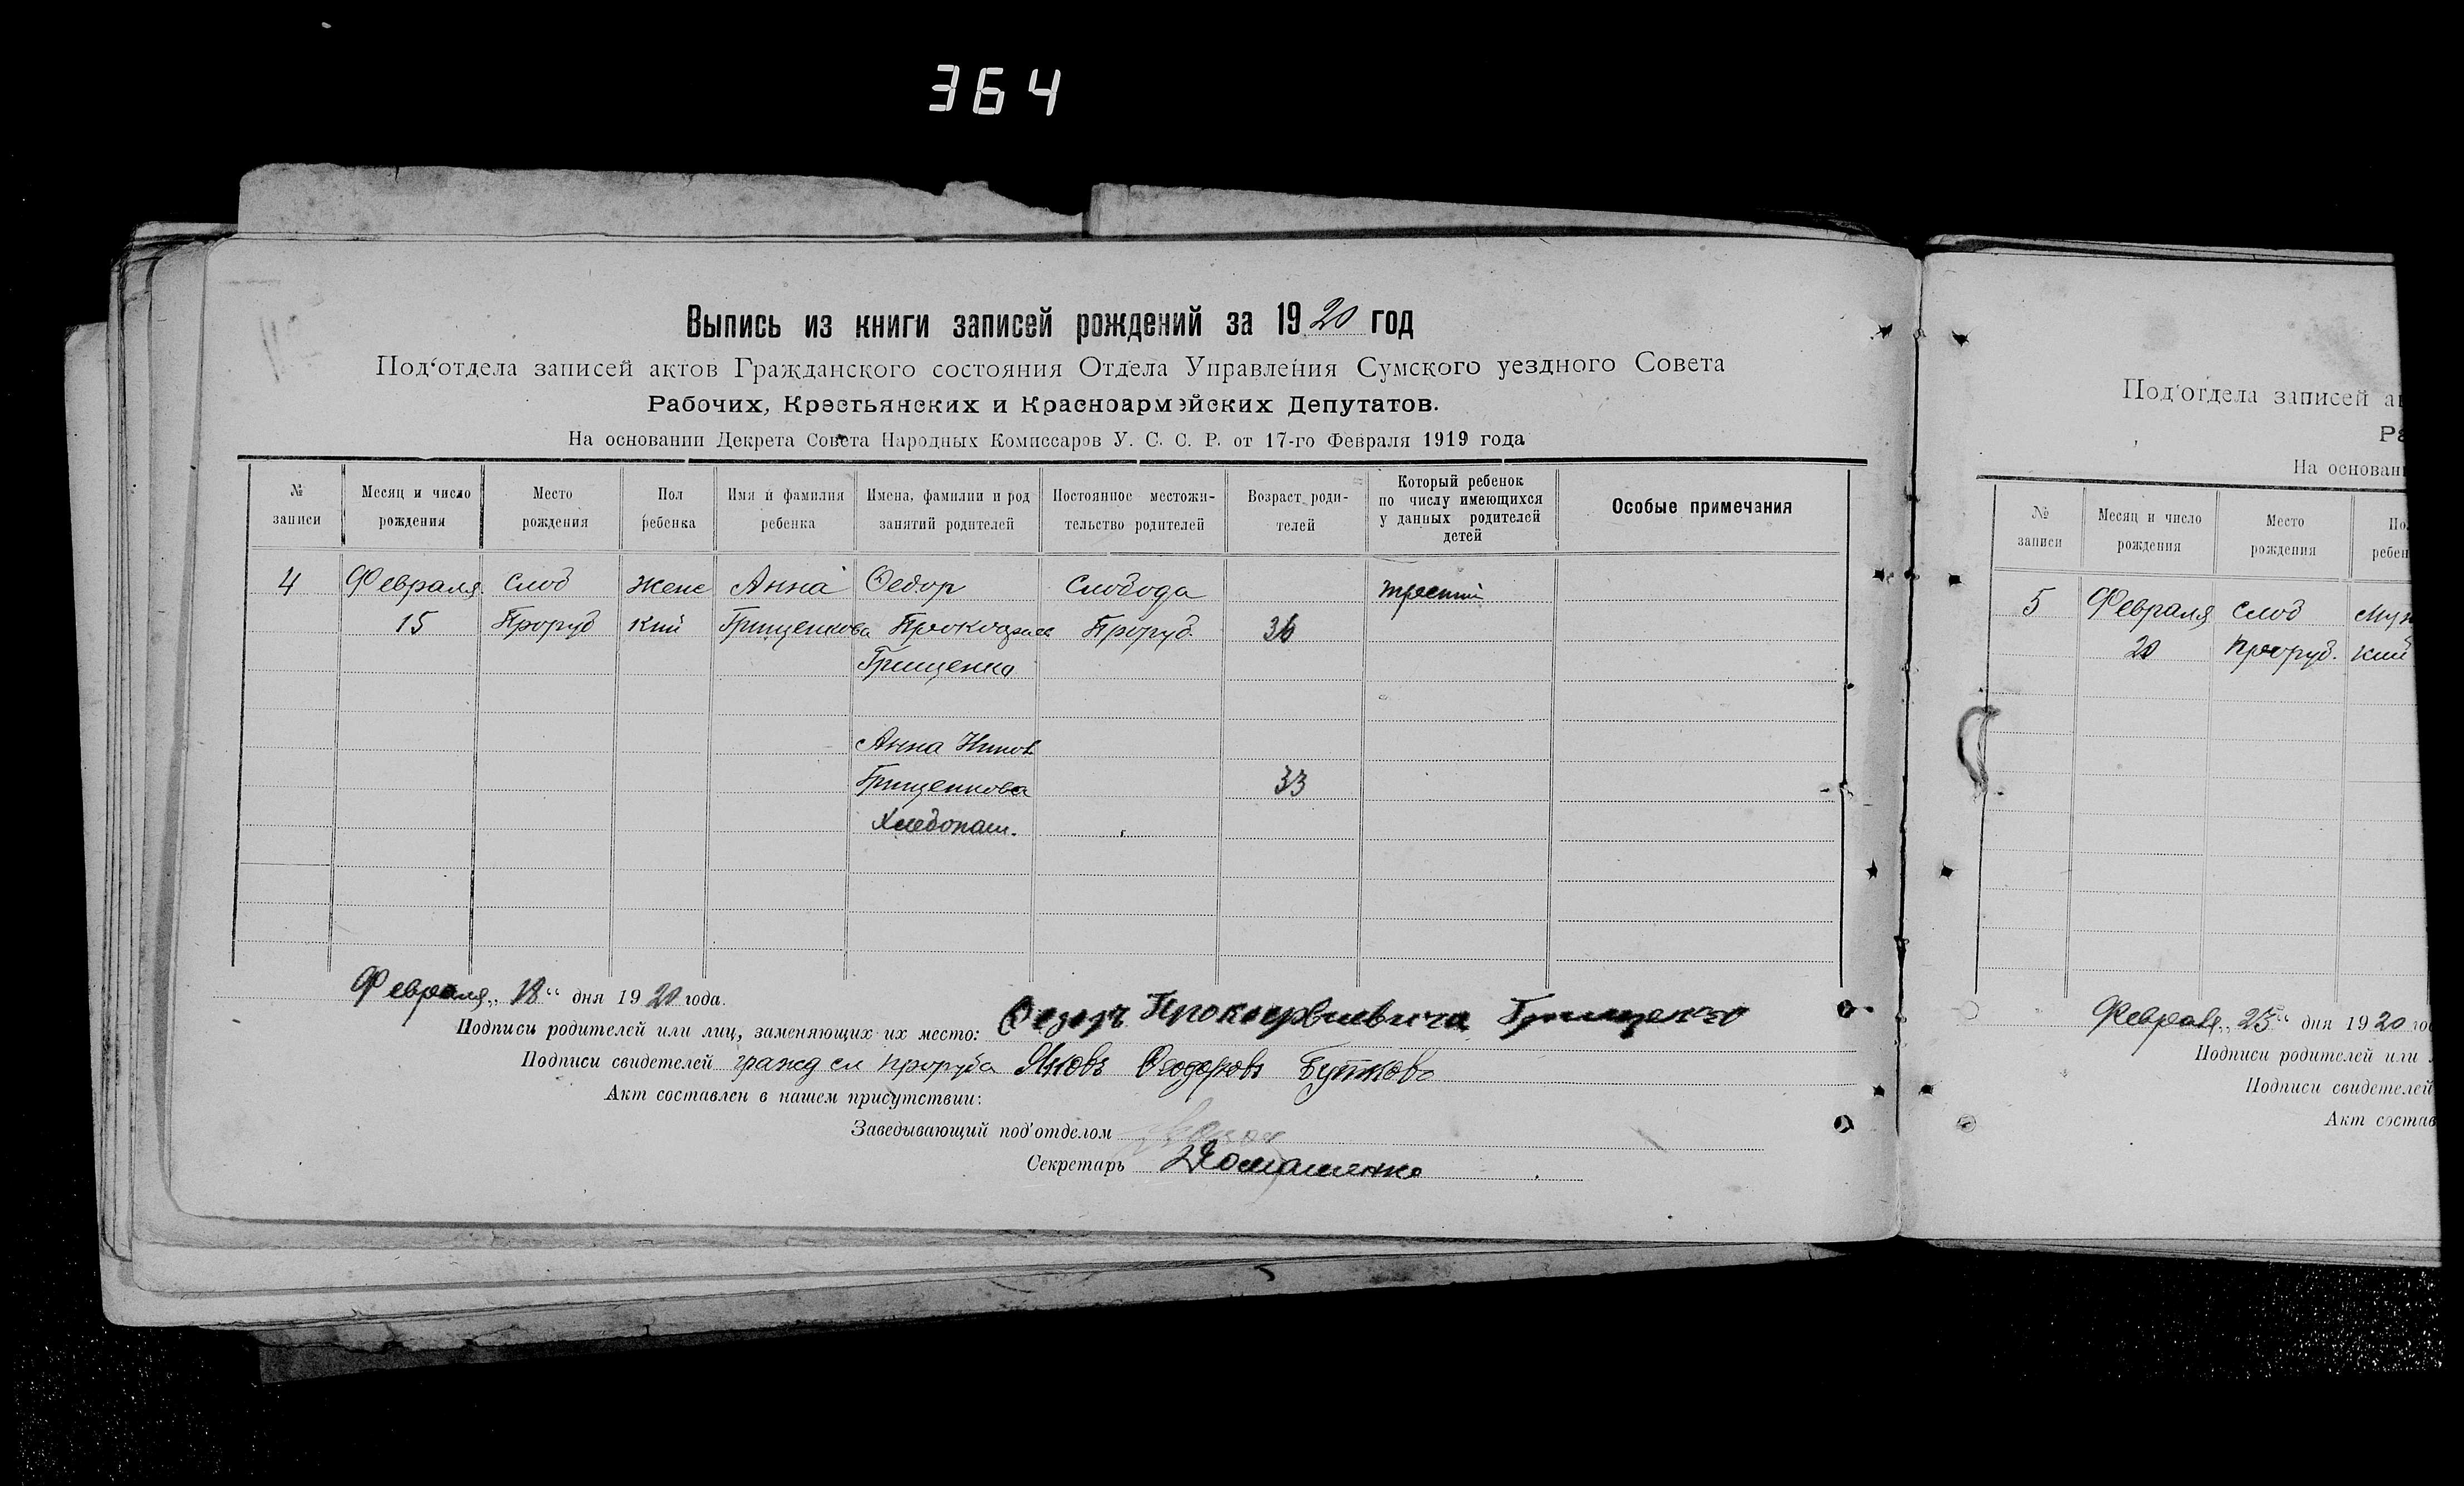 364
Выпись из книги записей рождений за 1920 год
Под'отдела записей актов Гражданского состояния Отдела Управления Сумского уездного Совета
Рабочих, Крестьянских и Красноармейских Депутатов.
На основании Декрета Совета Народных Комиссаров У. С. С. Р. от 17-го Февраля 1919 года
№ записи
Месяц и число рождения
Место рождения
Пол ребенка
Имя и фамилия ребенка
Имена, фамилии и род занятий родителей
Постоянное местожительство родителей
Возраст родителей
Который ребенок по числу имеющихся у данных родителей детей
Особые примечания
4 Февраля Слоб Женс Анна Федор Слобода третий
15 Проруб кий Грищенкова Проруб. 36
Грищенко
Анна
Грищенкова 33
Хлебопаш.
Февраля „18“ дня 1920 года.
Подписи родителей или лиц, заменяющих их место: Грищенко
Подписи свидетелей гражд сл проруба Яковъ
Акт составлен в нашем присутствии:
Заведывающий под'отделом
Секретарь Домашенко
Под'отдела записей а
Ра
На основан
№ записи
Месяц и число рождения
Место рождения
По
ребен
5 Февраля Слоб Муж
20 Проруб. кий
Февраля „25“ дня 1920 го
Подписи родителей или
Подписи свидетелей
Акт состав